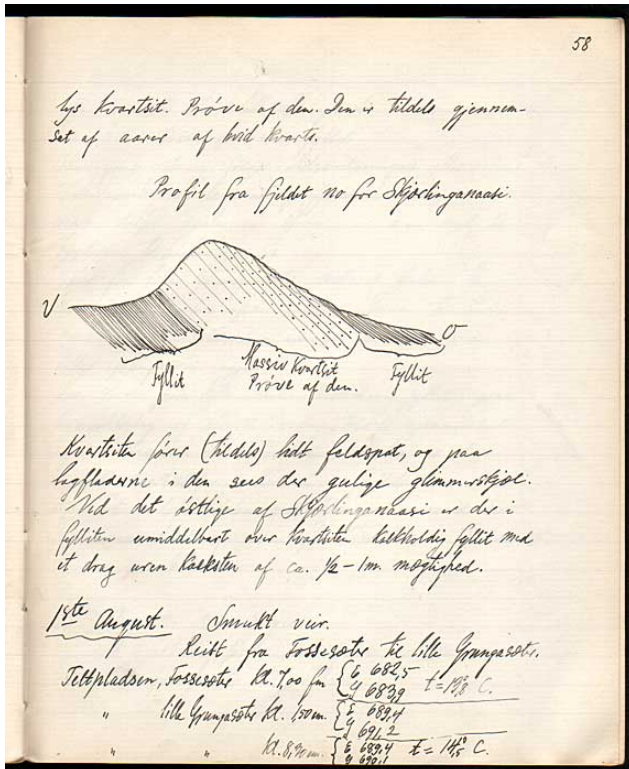 58
lys Kvartsit. Prøve af den. Den er tildels gjennem-
sat af aarer af hvid kvarts.
Profil fra fjeldet no for Skjørlinganaasi.
V
O
Fyllit
Massiv Kvartsit
Prøve af den.
Fyllit
Kvartsiten fører (tildels) lidt feldspat, og paa
lagfladerne i den sees der gulige glimmerskjæl.
Ved det østlige af Skjørlinganaasi er der i
fylliten umiddelbart over kvartsiten kalkholdig fyllit med
et drag uren kalksten af ca. 1/2 - 1m. mægtighed.
1ste August. Smukt veir.
Reist fra Fossesæter til lille Grungasæter.
Teltpladsen, Fossesæter Kl. 7,00 fm { E 682,5
683,9 t=19,8° C.
" lille Grungasæter Kl. 1,50 em. { E 689,4
691,2
" " Kl. 8, em. { E 689,4 t = 14,5° C.
690,1